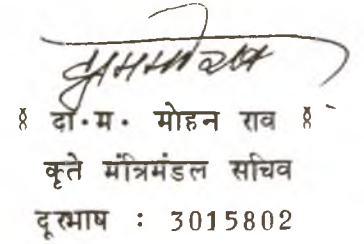 ( दा.म. मोहन राव )
कृते मंत्रिमंडल सचिव
दूरभाष : 3015802